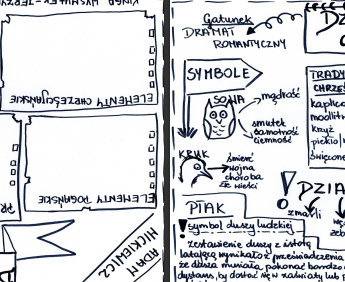 Gatunek
DRAMAT
ROMANTYCZNY
SYMBOLE
SOWA
mądrość
smutek
samotność
ciemność
KRUK
śmierć
wojna
choroba
złe wieści
PTAK
symbol duszy ludzkiej
Zestawienie duszy z istotą
latającą wynikało z przeświadczenia
że dusza musiała pokonać bardzo
dystans, by dostać się w zaświaty lub
TRADY
CHRZEŚ
kaplica
modlitw
krzyż
piekło/
święcone
DZIA
zmarli
ELEMENTY CHRZEŚCIJAŃSKIE
ELEMENTY POGAŃSKIE
ADAM
MICKIEWICZ